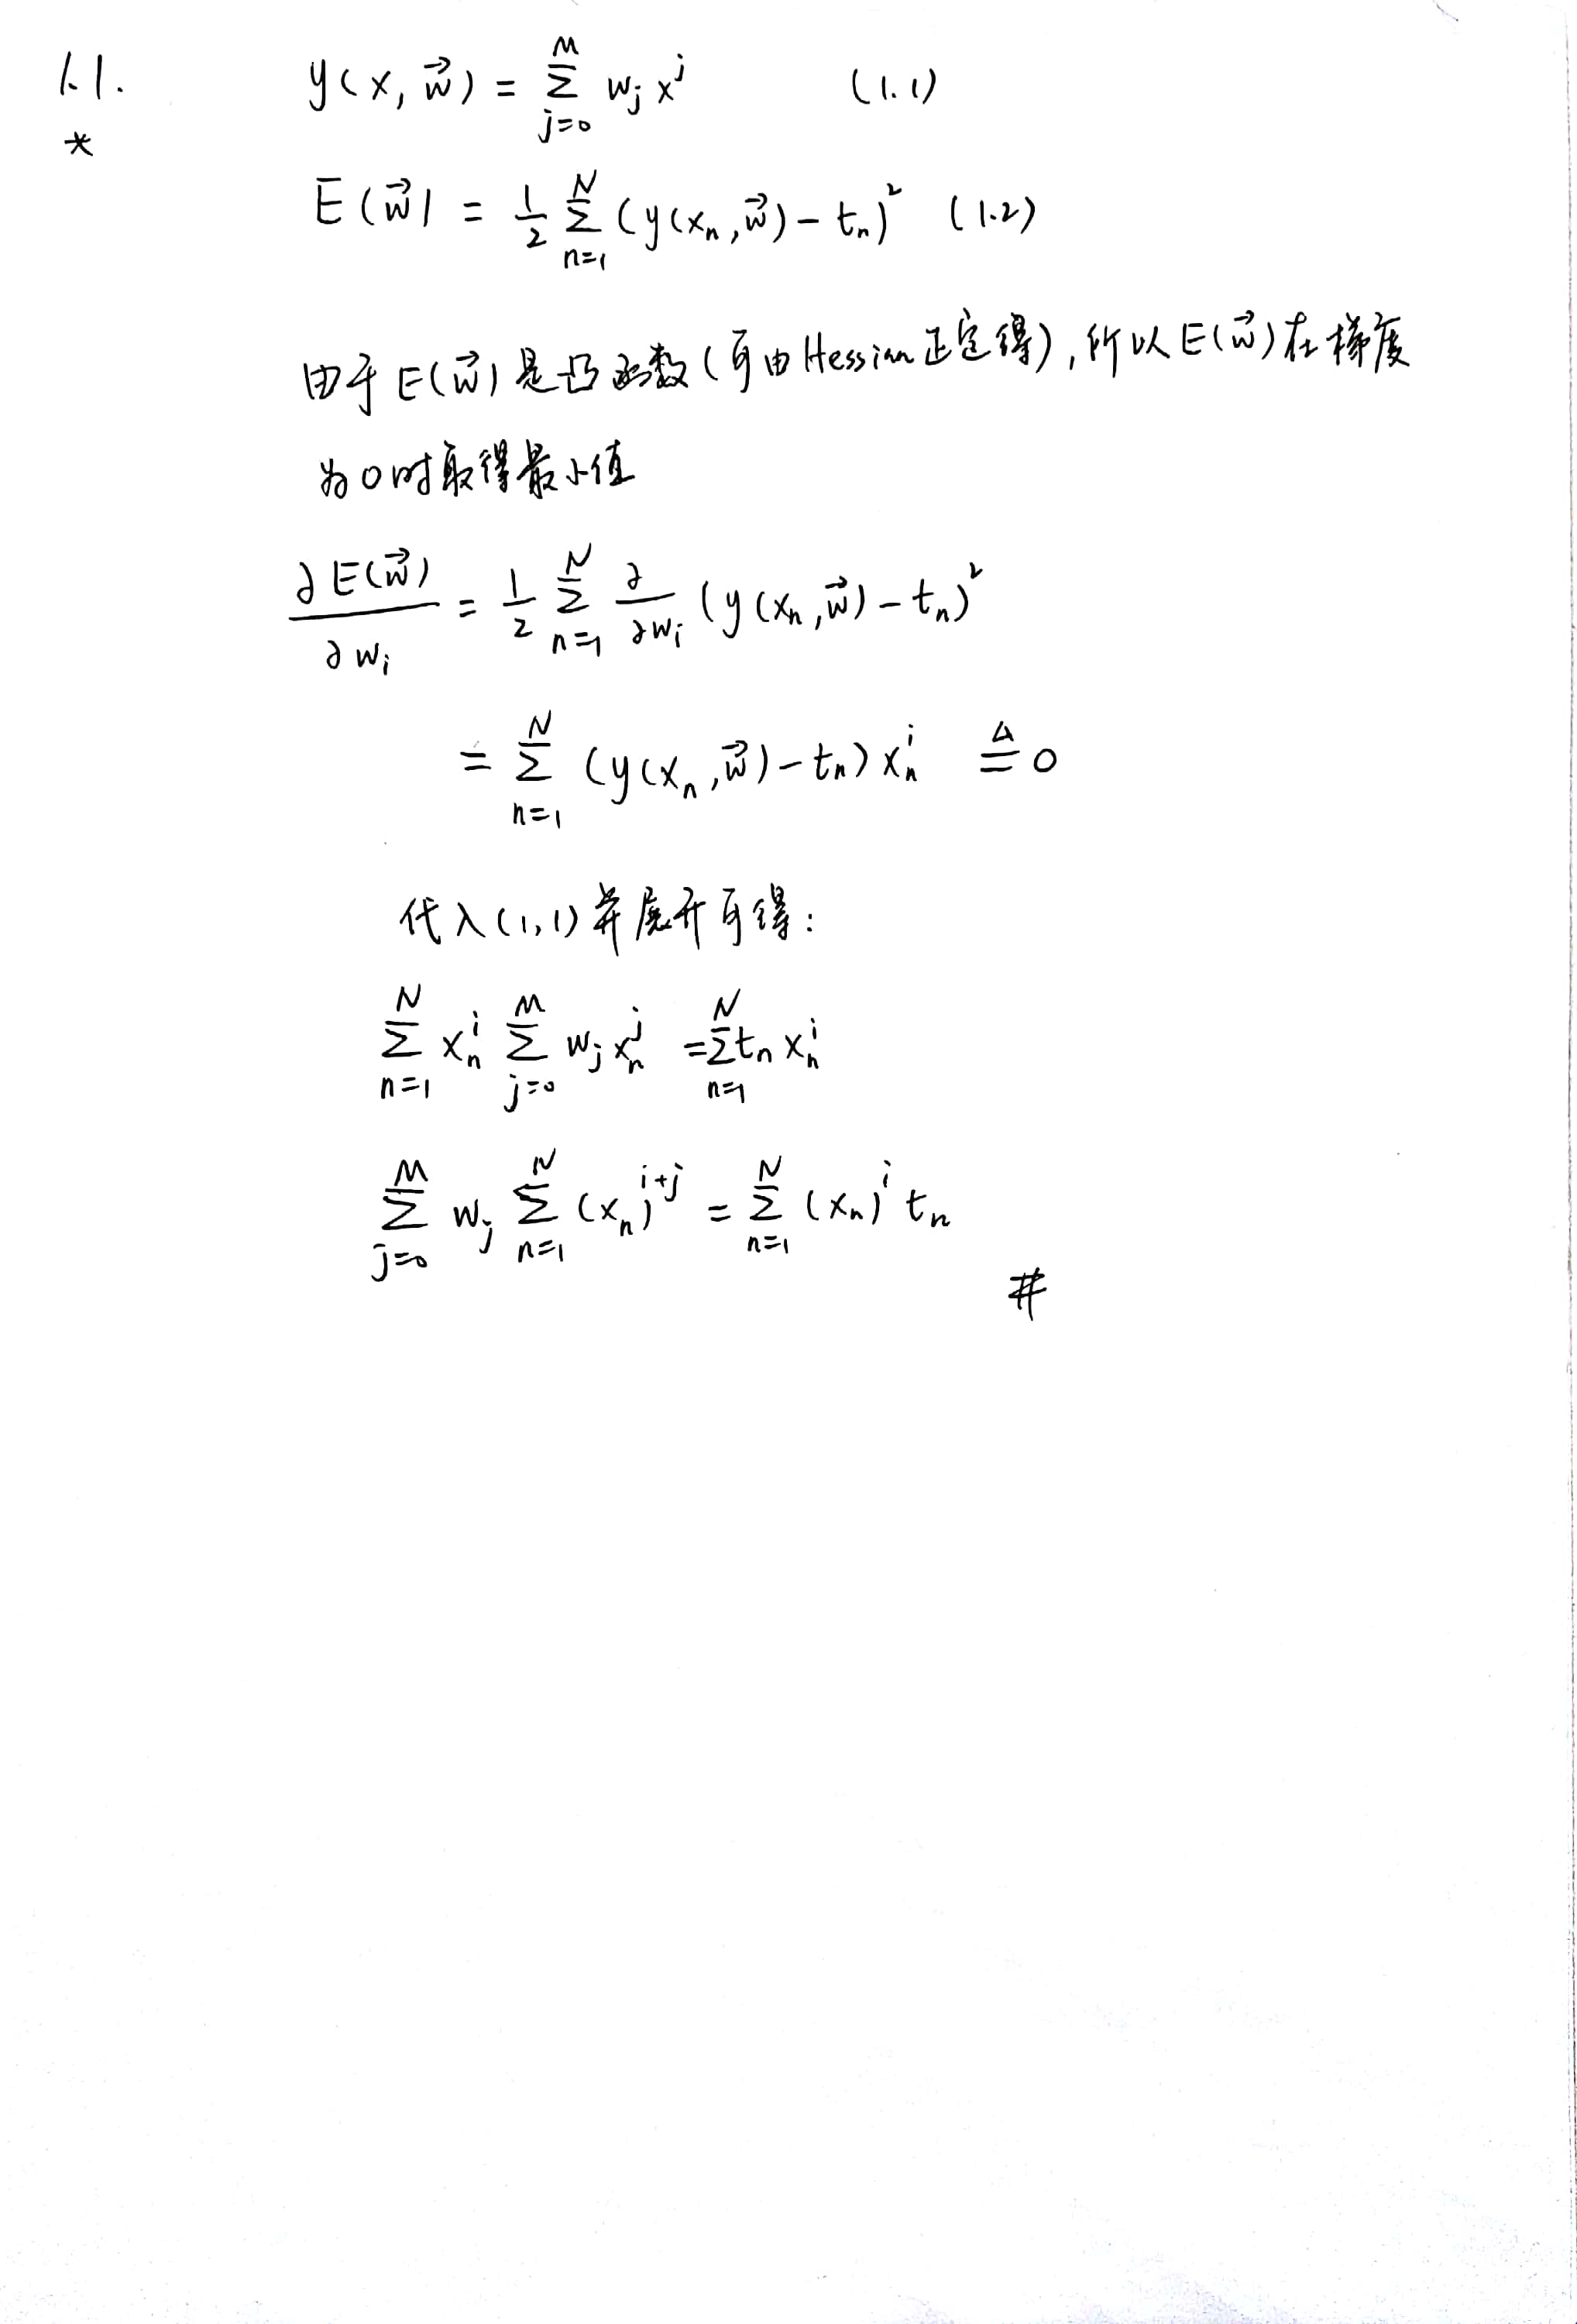 1.1. y(x, w⃗) = Σ_{j=0}^{M} w_j x^j (1.1)
*
E(w⃗) = 1/2 Σ_{n=1}^{N} (y(x_n, w⃗) - t_n)² (1.2)
由于E(w⃗)是凸函数(可由Hessian正定得),所以E(w⃗)在梯度
为0时取得最小值
∂E(w⃗)/∂w_i = 1/2 Σ_{n=1}^{N} ∂/∂w_i (y(x_n, w⃗) - t_n)²
= Σ_{n=1}^{N} (y(x_n, w⃗) - t_n) x_n^i ≜ 0
代入(1,1)并展开可得:
Σ_{n=1}^{N} x_n^i Σ_{j=0}^{M} w_j x_n^j = Σ_{n=1}^{N} t_n x_n^i
Σ_{j=0}^{M} w_j Σ_{n=1}^{N} (x_n)^{i+j} = Σ_{n=1}^{N} (x_n)^i t_n
#